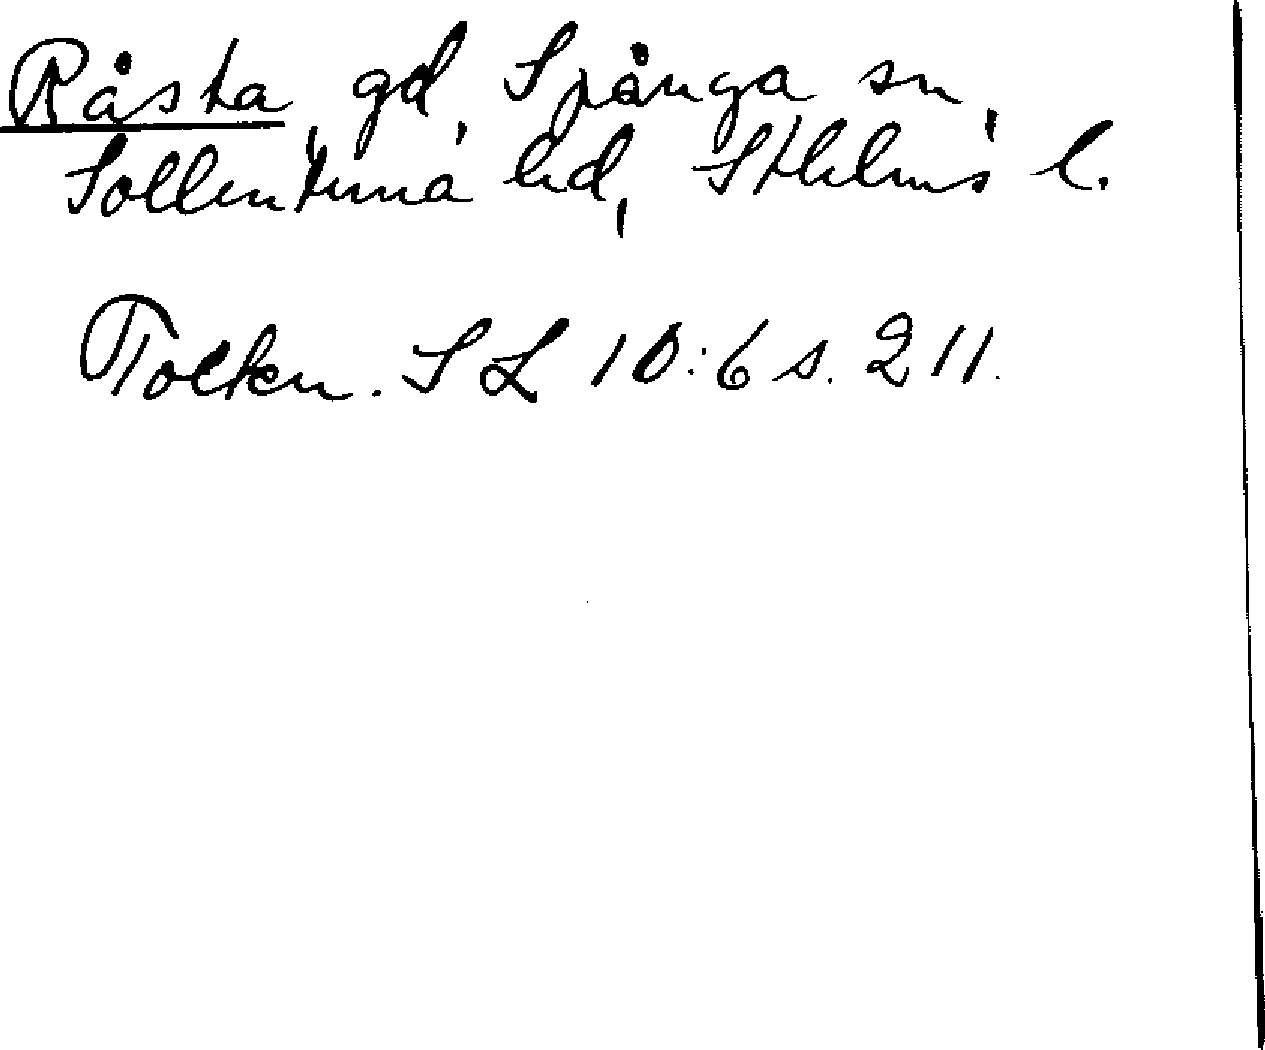 Råsta, gd, Spånga sn,
Sollentuna hd, Sthlms l.
Tolkn. SL 10:6 s. 211.